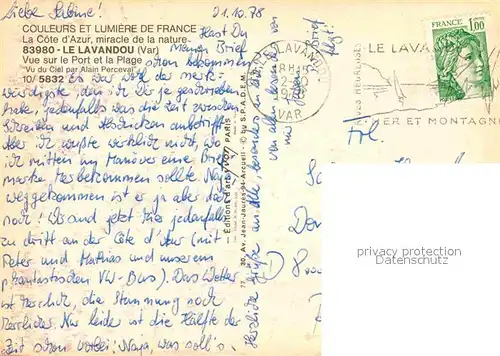 Liebe Sabine!
21.10.78
COULEURS ET LUMIÈRE DE FRANCE
La Côte d'Azur, miracle de la nature
83980 - LE LAVANDOU (Var)
Vue sur le Port et la Plage
"Vu du Ciel par Alain Perceval"
10/5832
Hast Du
meinen Brief
schon bekommen
Es war wohl der merk-
würdigste, den ich Dir je geschrieben
habe, jedenfalls was die Zeit zwischen
Schreiben und Abschicken anbetrifft.
Aber ich wußte wirklich nicht, wo
ich mitten im Manöver eine Brief-
marke herbekommen sollte. Na,
weggekommen ist er ja aber dann
noch! Wir sind jetzt hier jedenfalls
zu dritt an der Côte d'Azur (mit
Peter und Mathias und unserem
phantastischen VW-Bus). Das Wetter
ist herrlich, die Stimmung noch
herrlicher. Nur leider ist die Hälfte der
Zeit schon vorbei. Naja, was soll's.
Herzliche Grüße an alle, besonders an Dich
von
mir
Brief
folgt!
Éditions d'art YVON PARIS
30, Av. Jean-Jaurès 94-Arcueil - © by S.P.A.D.E.M.
LE LAVANDOU
VAR
LE LAVAN
MER ET MONTAGN
FRANCE
1,00
Frl.
privacy protection
www.delcampe.net